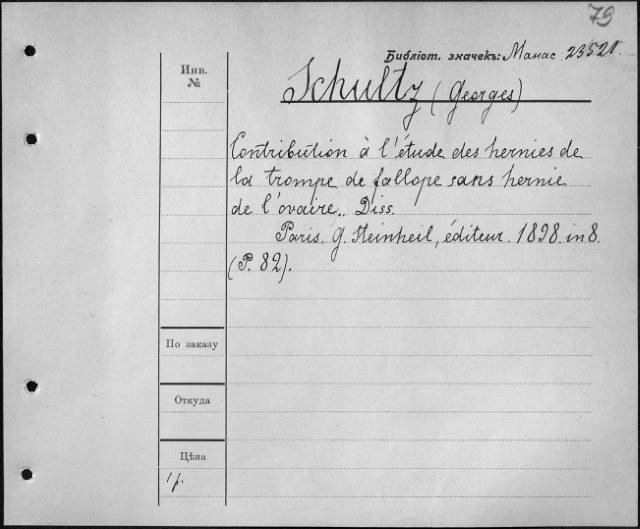 79
Библіот. значекъ: Манас 23521.
Инв.
№
Schultz (Georges)
Contribution à l'étude des hernies de
la trompe de fallope sans hernie
de l'ovaire. Diss.
Paris. G. Steinheil, éditeur. 1898. in 8.
(P. 82).
По заказу
Откуда
Цѣна
1 р.